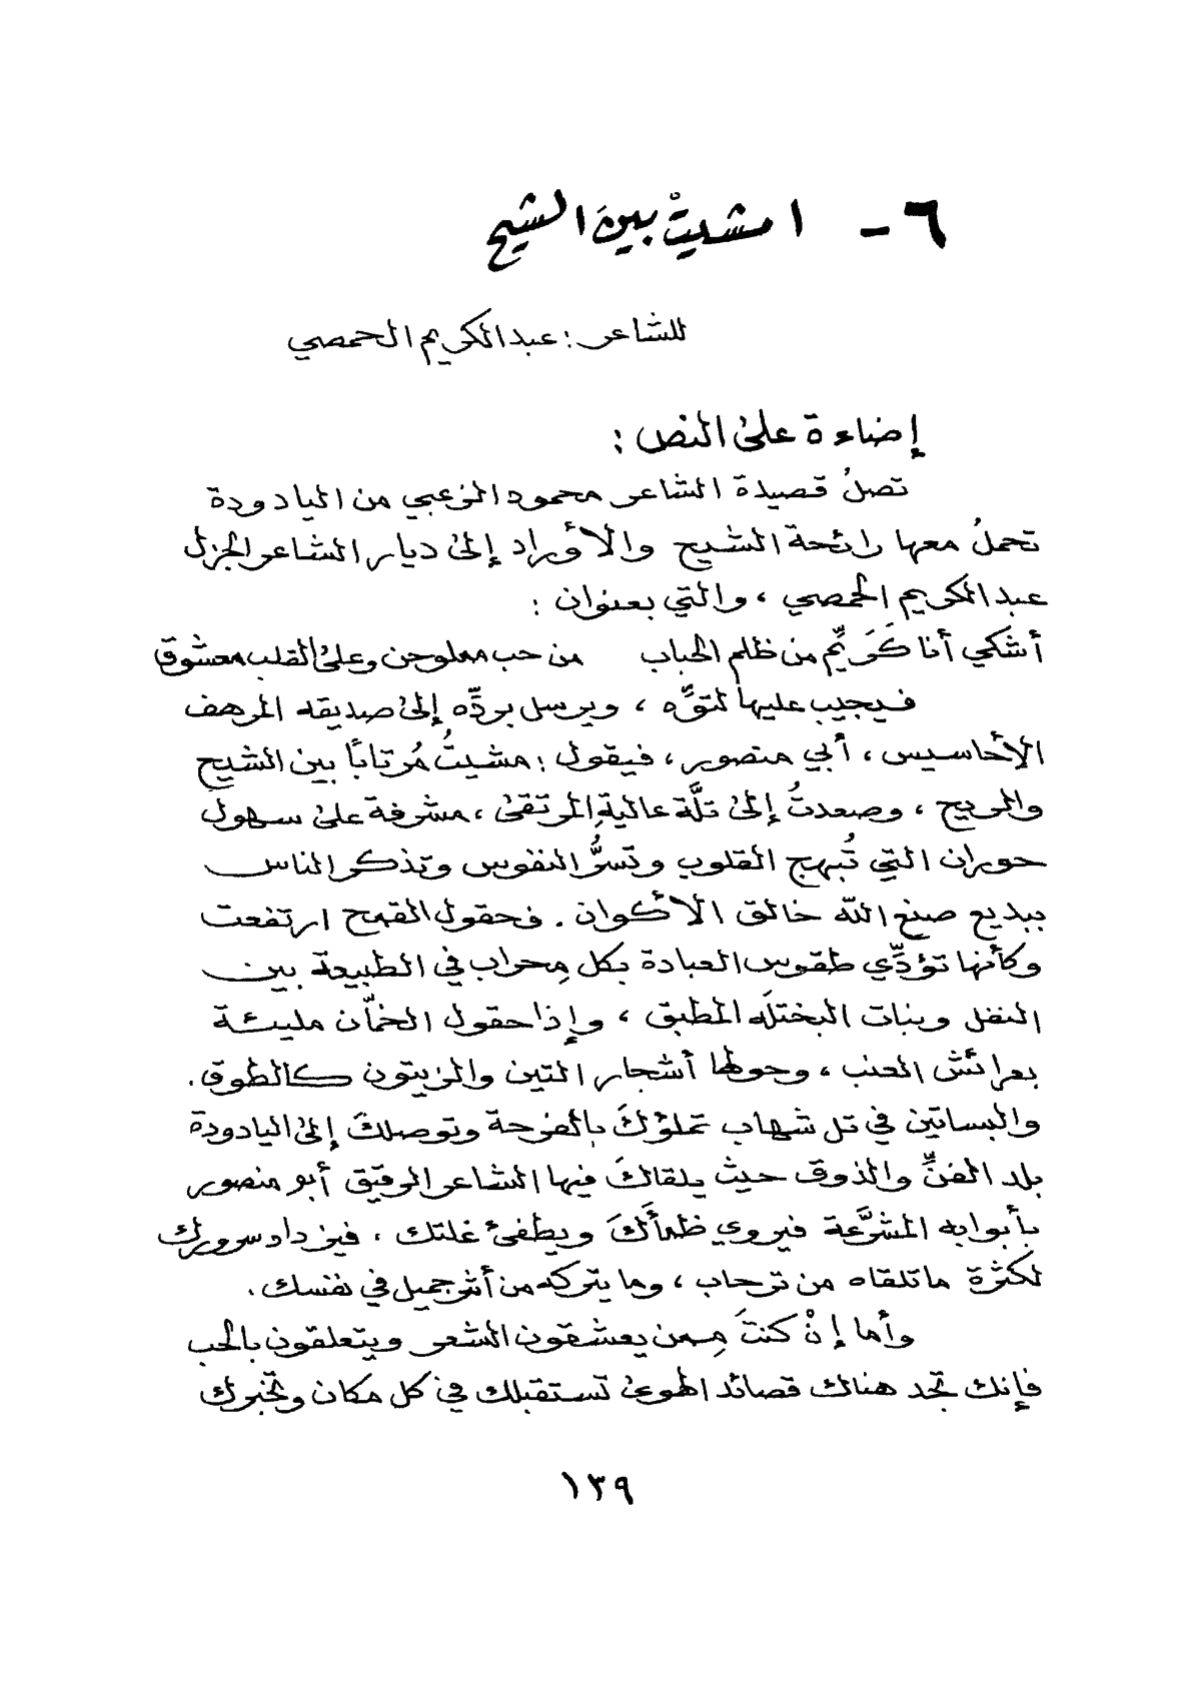 ٦ - امشيتْ بينَ الشيح
للشاعر : عبدالكريم الحمصي
إضاءة على النص :
تصلُ قصيدة الشاعر محمود الزعبي من اليادودة
تحملُ معها رائحة الشيح والأوراد إلى ديار الشاعر الجزل
عبدالكريم الحمصي ، والتي بعنوان :
أشكي أنا كَرَيِّم من ظلم الحباب من حب معلوجن وعلى القلب معشوق
فيجيب عليها لتوِّه ، ويرسل بردِّه إلى صديقه المرهف
الأحاسيس ، أبي منصور ، فيقول : مشيتُ مُرتابًا بين الشيح
والبريح ، وصعدتُ إلى تلَّة عاليةِ المرتقى ، مشرفة على سهول
حوران التي تُبهج القلوب وتسرُّ النفوس وتذكر الناس
ببديع صنع الله خالق الأكوان . فحقول القمح ارتفعت
وكأنها تؤدِّي طقوس العبادة بكل مِحراب في الطبيعة بين
النفل ونبات البختلَه المطبق ، وإذا حقول الخمّان مليئة
بعرائش العنب ، وحولها أشجار التين والزيتون كالطوق .
والبساتين في تل شهاب تملؤكَ بالفرحة وتوصلكَ إلى اليادودة
بلد الفنِّ والذوق حيث يلقاكَ فيها الشاعر الرقيق أبو منصور
بأبوابه المشرَّعة فيروي ظمأَكَ ويطفئ غلتك ، فيزداد سرورك
لكثرة ماتلقاه من ترحاب ، وما يتركه من أثر جميل في نفسك .
وأما إنْ كنتَ مِمن يعشقون الشعر ويتعلقون بالحب
فإنك تجد هناك قصائد الهوى تستقبلك في كل مكان وتخبرك
١٣٩